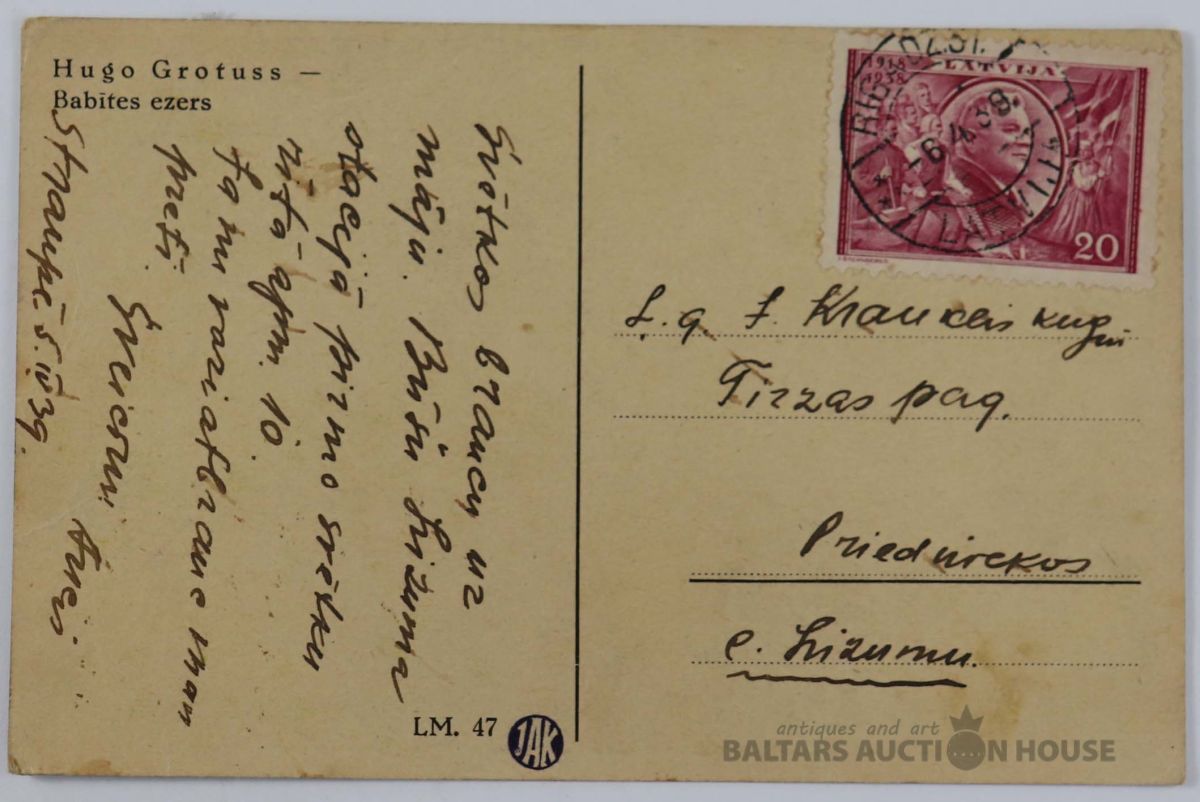 Hugo Grotuss —
Babītes ezers
Svētkos braucu uz
māju. Būšu Lizuma
stacijā pirmo svētku
rītā apm. 10.
Ja var atbrauc man
pretī.
Sveicini
Straupē 5.IV 39.
1918
1938
LATVIJA
20
-6.4.39.
LATVIJA
L. g. J. Krauklis kungm
Tirzas pag.
Priedniekos
c. Lizumu.
LM. 47 JAK
antiques and art
BALTARS AUCTION HOUSE